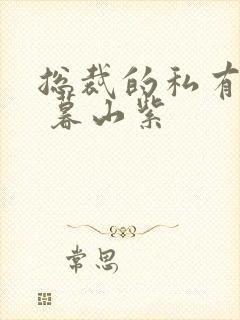 总裁的私有
暮山紫
常思